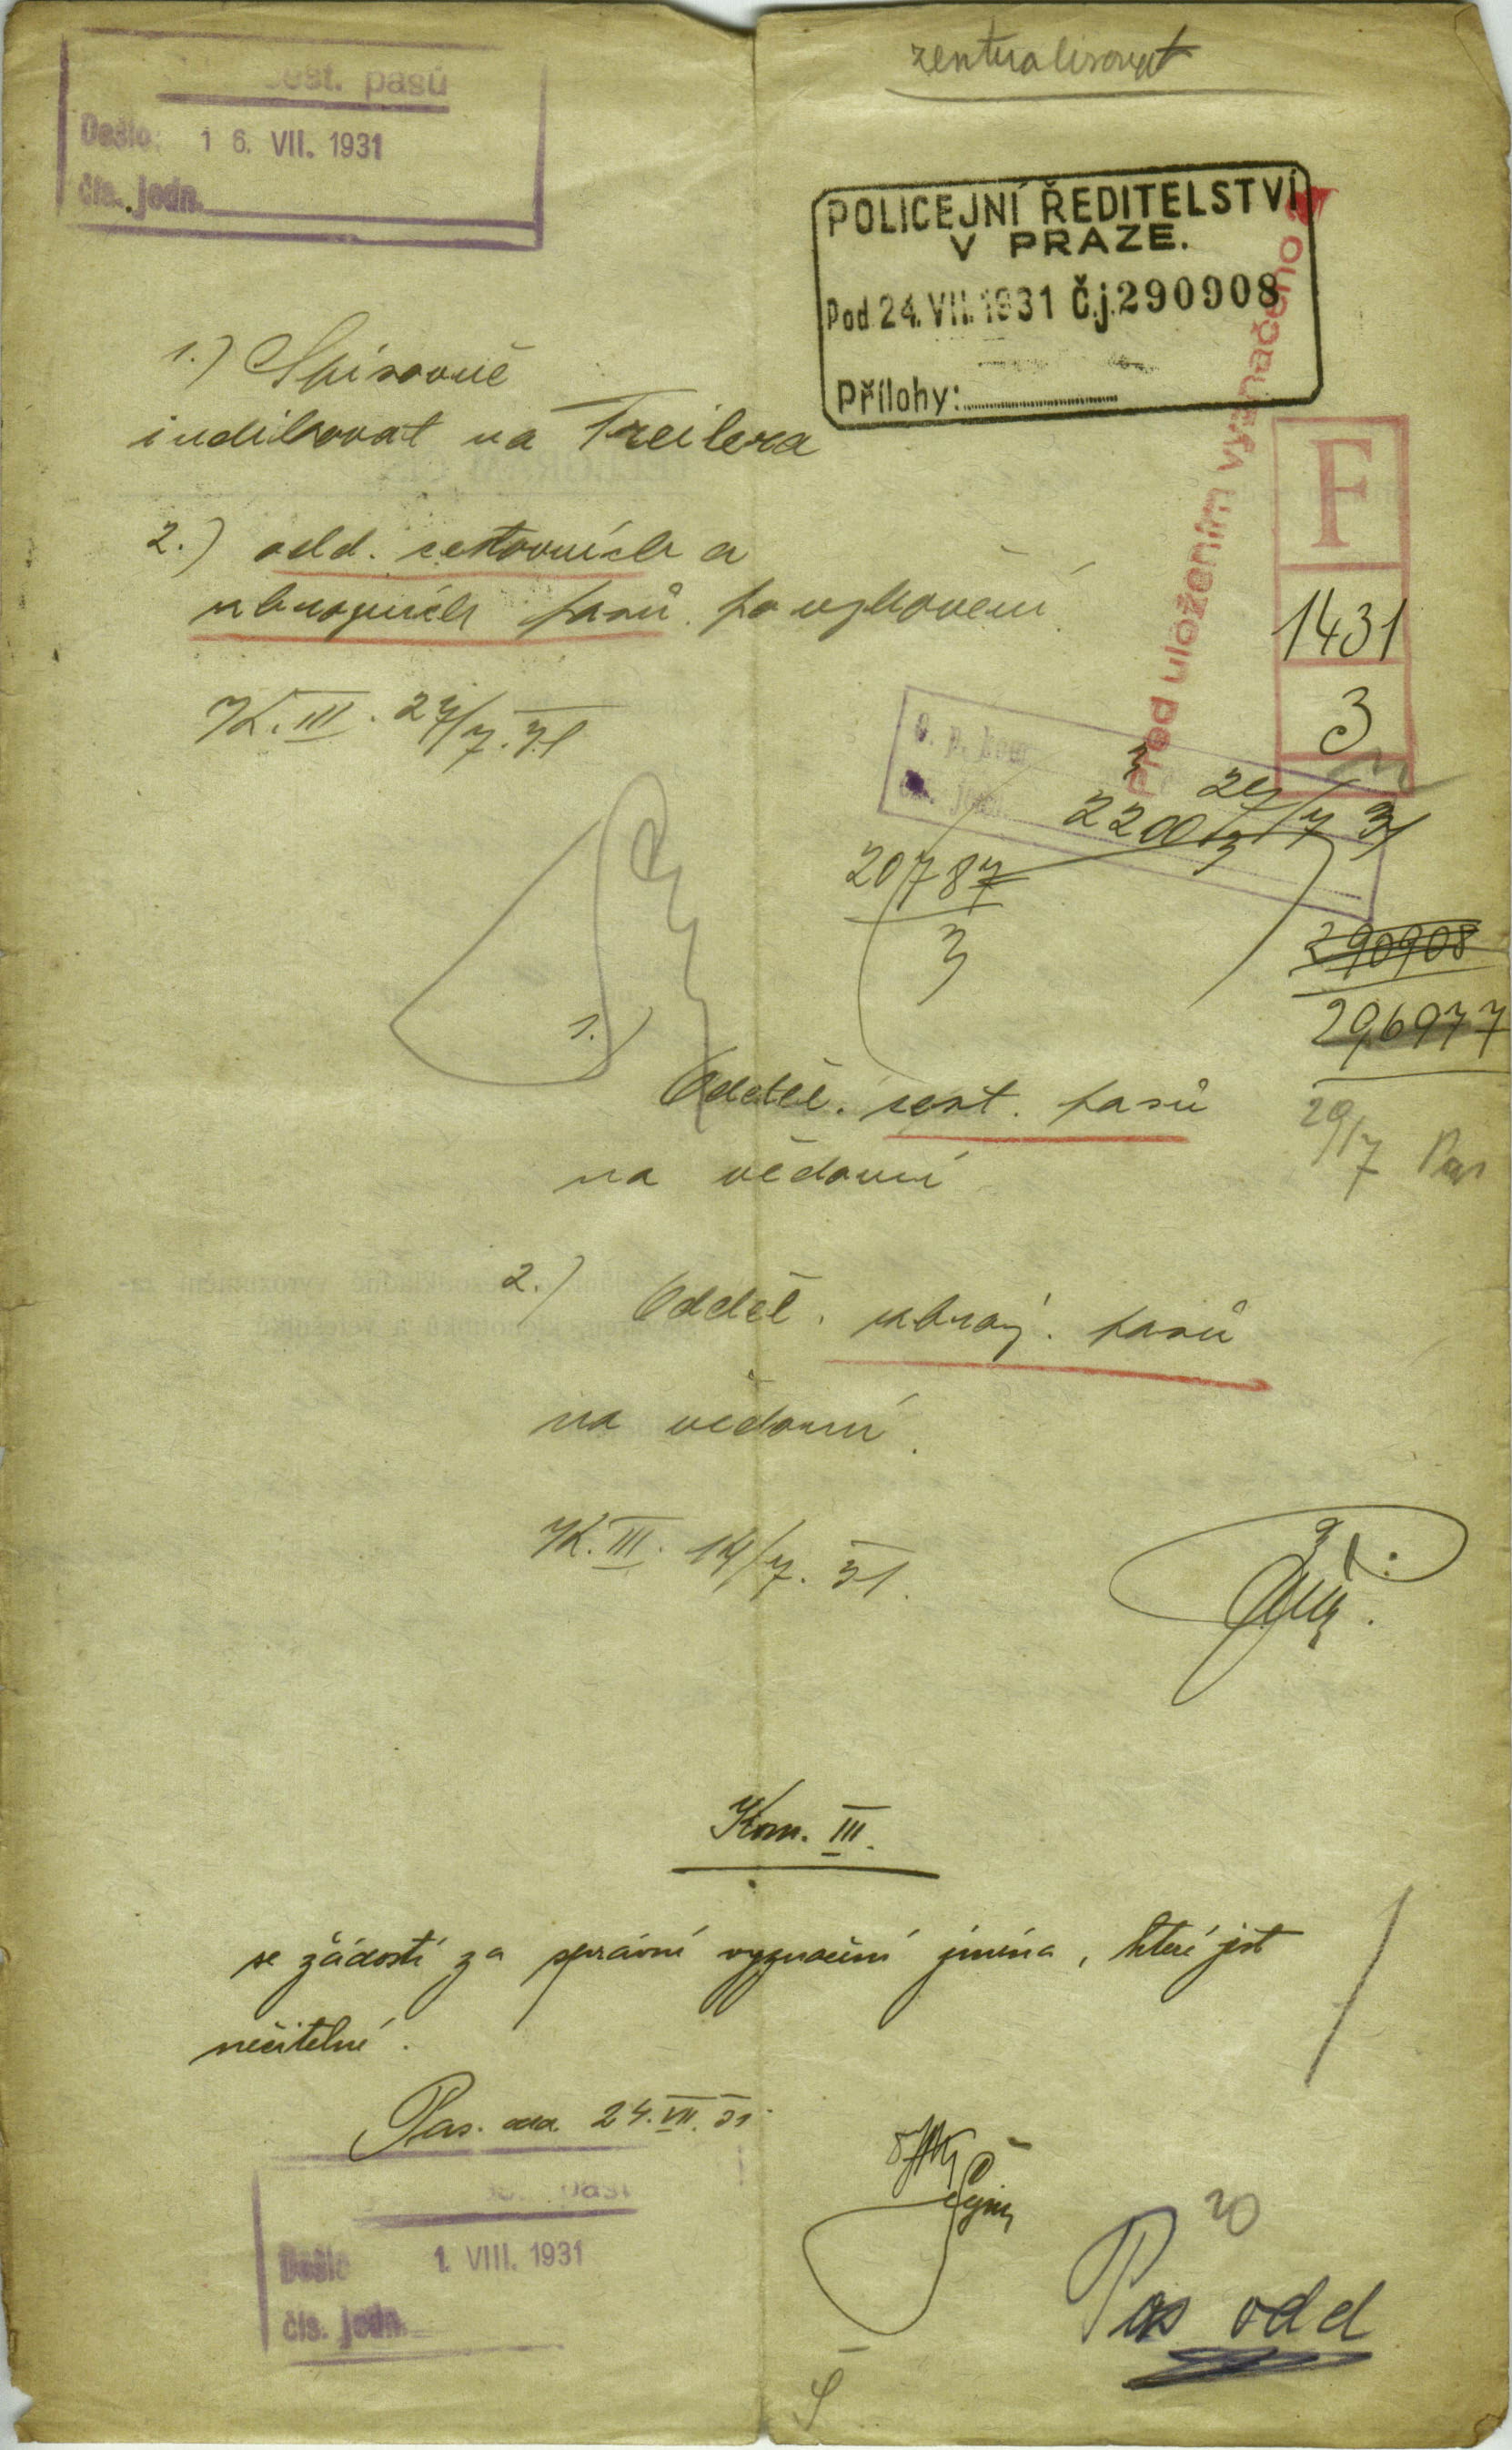 zentralisovat
cest. pasů
Došlo: 16. VII. 1931
čís. jedn.
POLICEJNÍ ŘEDITELSTVÍ
V PRAZE.
Pod 24. VII. 1931 Č.j. 290908
Přílohy:
Před uložením vyznačeno
1.) Spisovně
indikovat na Treilera
2.) odd. cestovních a
zbrojních pasů po vyhovění
K. III. 27/7. 31
F
1431
3
o. p. kom
čís. jedn.
3
22003
27/7 31
20787
3
290908
296977
29/7 Pas
1.)
Odděl. cest. pasů
na vědomí
2.)
Odděl. zbroj. pasů
na vědomí.
K. III. 14/7. 31.
Kom. III.
se žádostí za správní vyznačení jména, které jest
nečitelné.
Pas. odd. 24. VII. 31.
pas
Došlo 1. VIII. 1931
čís. jedn.
20
Pas odd